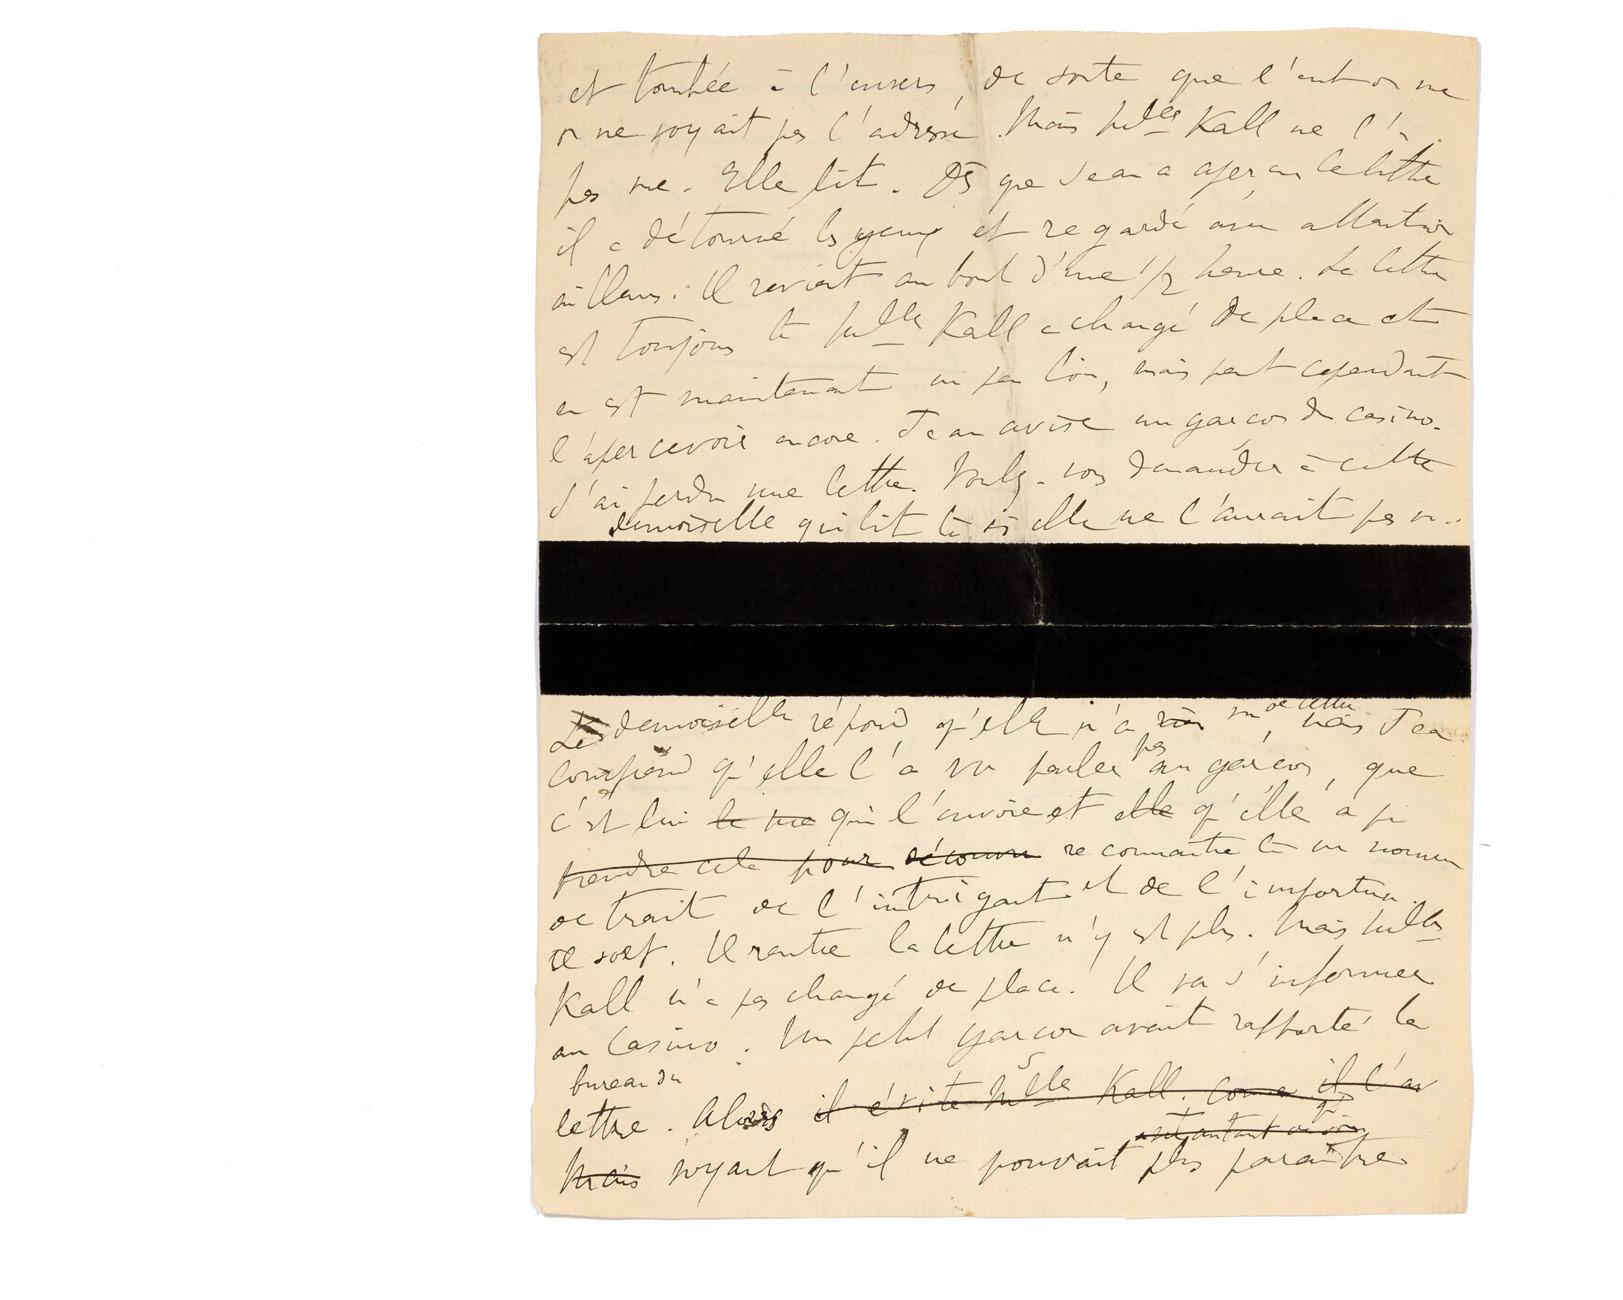 et tombée à l'envers, de sorte que l'
on ne voyait pas l'adresse. Mais Melle Kall ne l'a
pas vue. Elle lit. Dès que Jean a aperçu la lettre
il a détourné les yeux et regardé avec attention
ailleurs. Il revient au bout d'une 1/2 heure. La lettre
est toujours là Melle Kall a changé de place et
en est maintenant un peu loin, mais peut cependant
l'apercevoir encore. Jean avise un garçon du casino.
J'ai perdu une lettre. Voulez-vous demander à cette
demoiselle qui lit là si elle ne l'aurait pas vu..
La demoiselle répond qu'elle n'a rien vu de cette mais Jean
comprend qu'elle l'a vu parler pas au garçon, que
c'est lui qui l'envoie et elle qu'elle a pu
prendre cela pour découvrir reconnaitre là un nouveau
de trait de l'intrigant et de l'importun.
Il sort. Il rentre la lettre n'y est plus. Mais Melle
Kall n'a pas changé de place. Il va s'informer
au Casino. Un petit garçon avait rapporté la
bureau du
lettre. Alors il évite Melle Kall. Comme il l'a
Mais voyant qu'il ne pouvait plus paraître